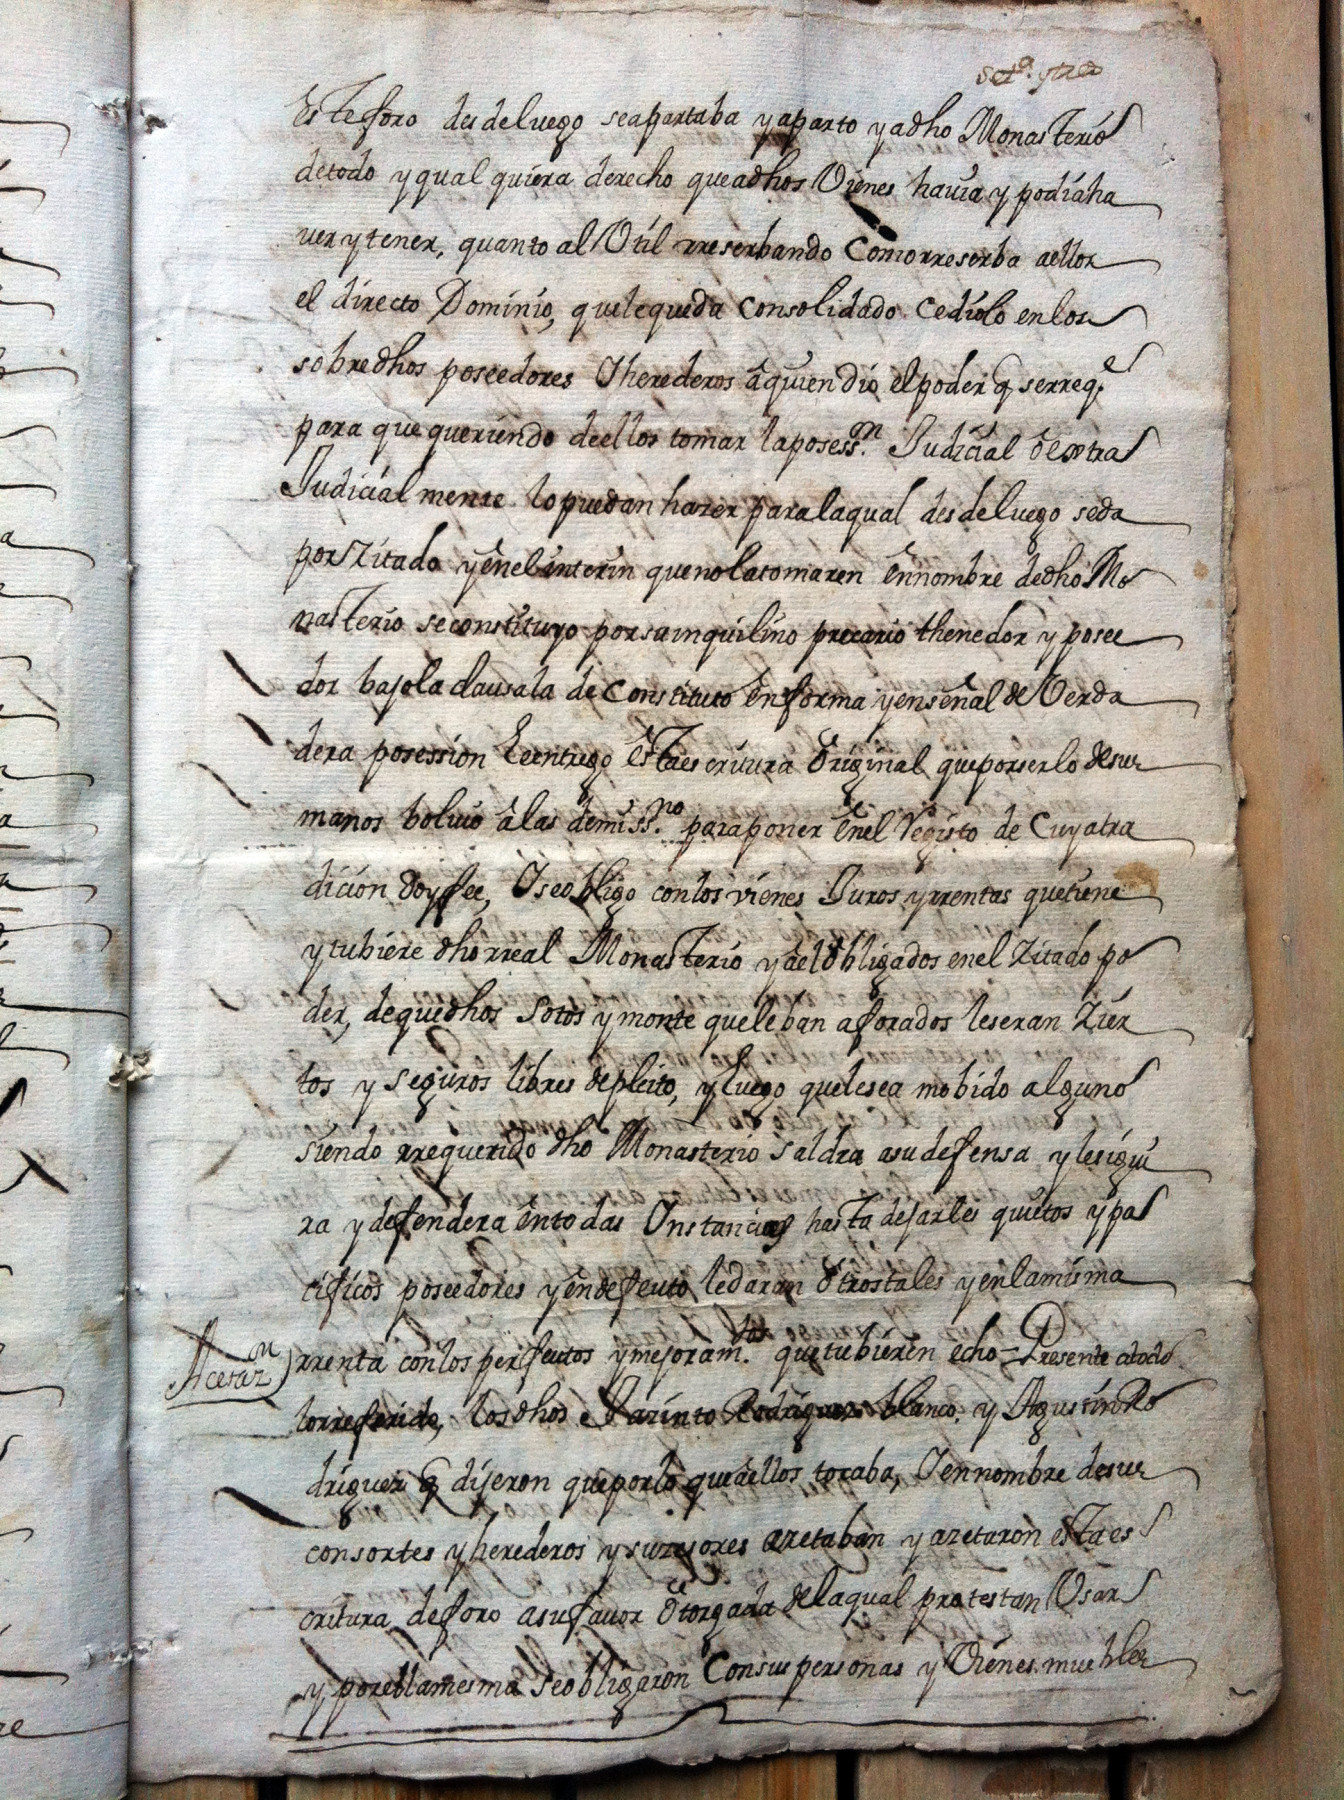 Set.ª y tres
Este foro desde luego se apartaba y aparto y a dho Monasterio
de todo y qual quiera derecho que a dhos Vienes havia y podia ha
ver y tener, quanto al Util rreserbando Como rreserba a ellos
el directo Dominio, que le queda Consolidado Cediolo en los
sobredhos poseedores Y herederos a quien dio el poder q se rreq.e
para que queriendo de ellos tomar la posess.on Judicial o extra
Judicialmente lo puedan hazer para la qual desde luego se da
por zitado y en el interin que no la tomaren en nombre de dho Mo
nasterio se constituyo por su inquilino precario thenedor y posee
dor bajo la clausula de Constituto en forma y en señal de Verda
dera posession le entrego esta escritura original que por serlo de sus
manos bolvio a las de mi ss.no para poner en el Registo de Cuya tra
dicion doy fee, Y se obligo con los vienes Juros y rrentas que tiene
y tubiere dho rreal Monasterio y a el obligados en el zitado po
der, de que dhos Sotos y monte que leban aforados le seran zier
tos y seguros libres de pleito, y luego que le sea mobido alguno
siendo rrequerido dho Monasterio saldra a su defensa y le sigui
ra y defendera en todas Ynstancias hasta dejarles quietos y pa
cificos poseedores y en defeuto le daran otros tales y en la misma
Acetaz.on
rrenta con los perfeutos y mejoram.tos que tubieren echo = Presente a todo
lo rreferido, los dhos Jazinto Rodriguez blanco, y Agustin Ro
driguez q dijeron que por lo que a ellos tocaba, Y en nombre de sus
consortes y herederos y suzesores azetaban y azetaron esta es
critura de foro a su favor otorgada de la qual protestan Usar
y por ella mesma se obligaron Con sus personas y Vienes muebles